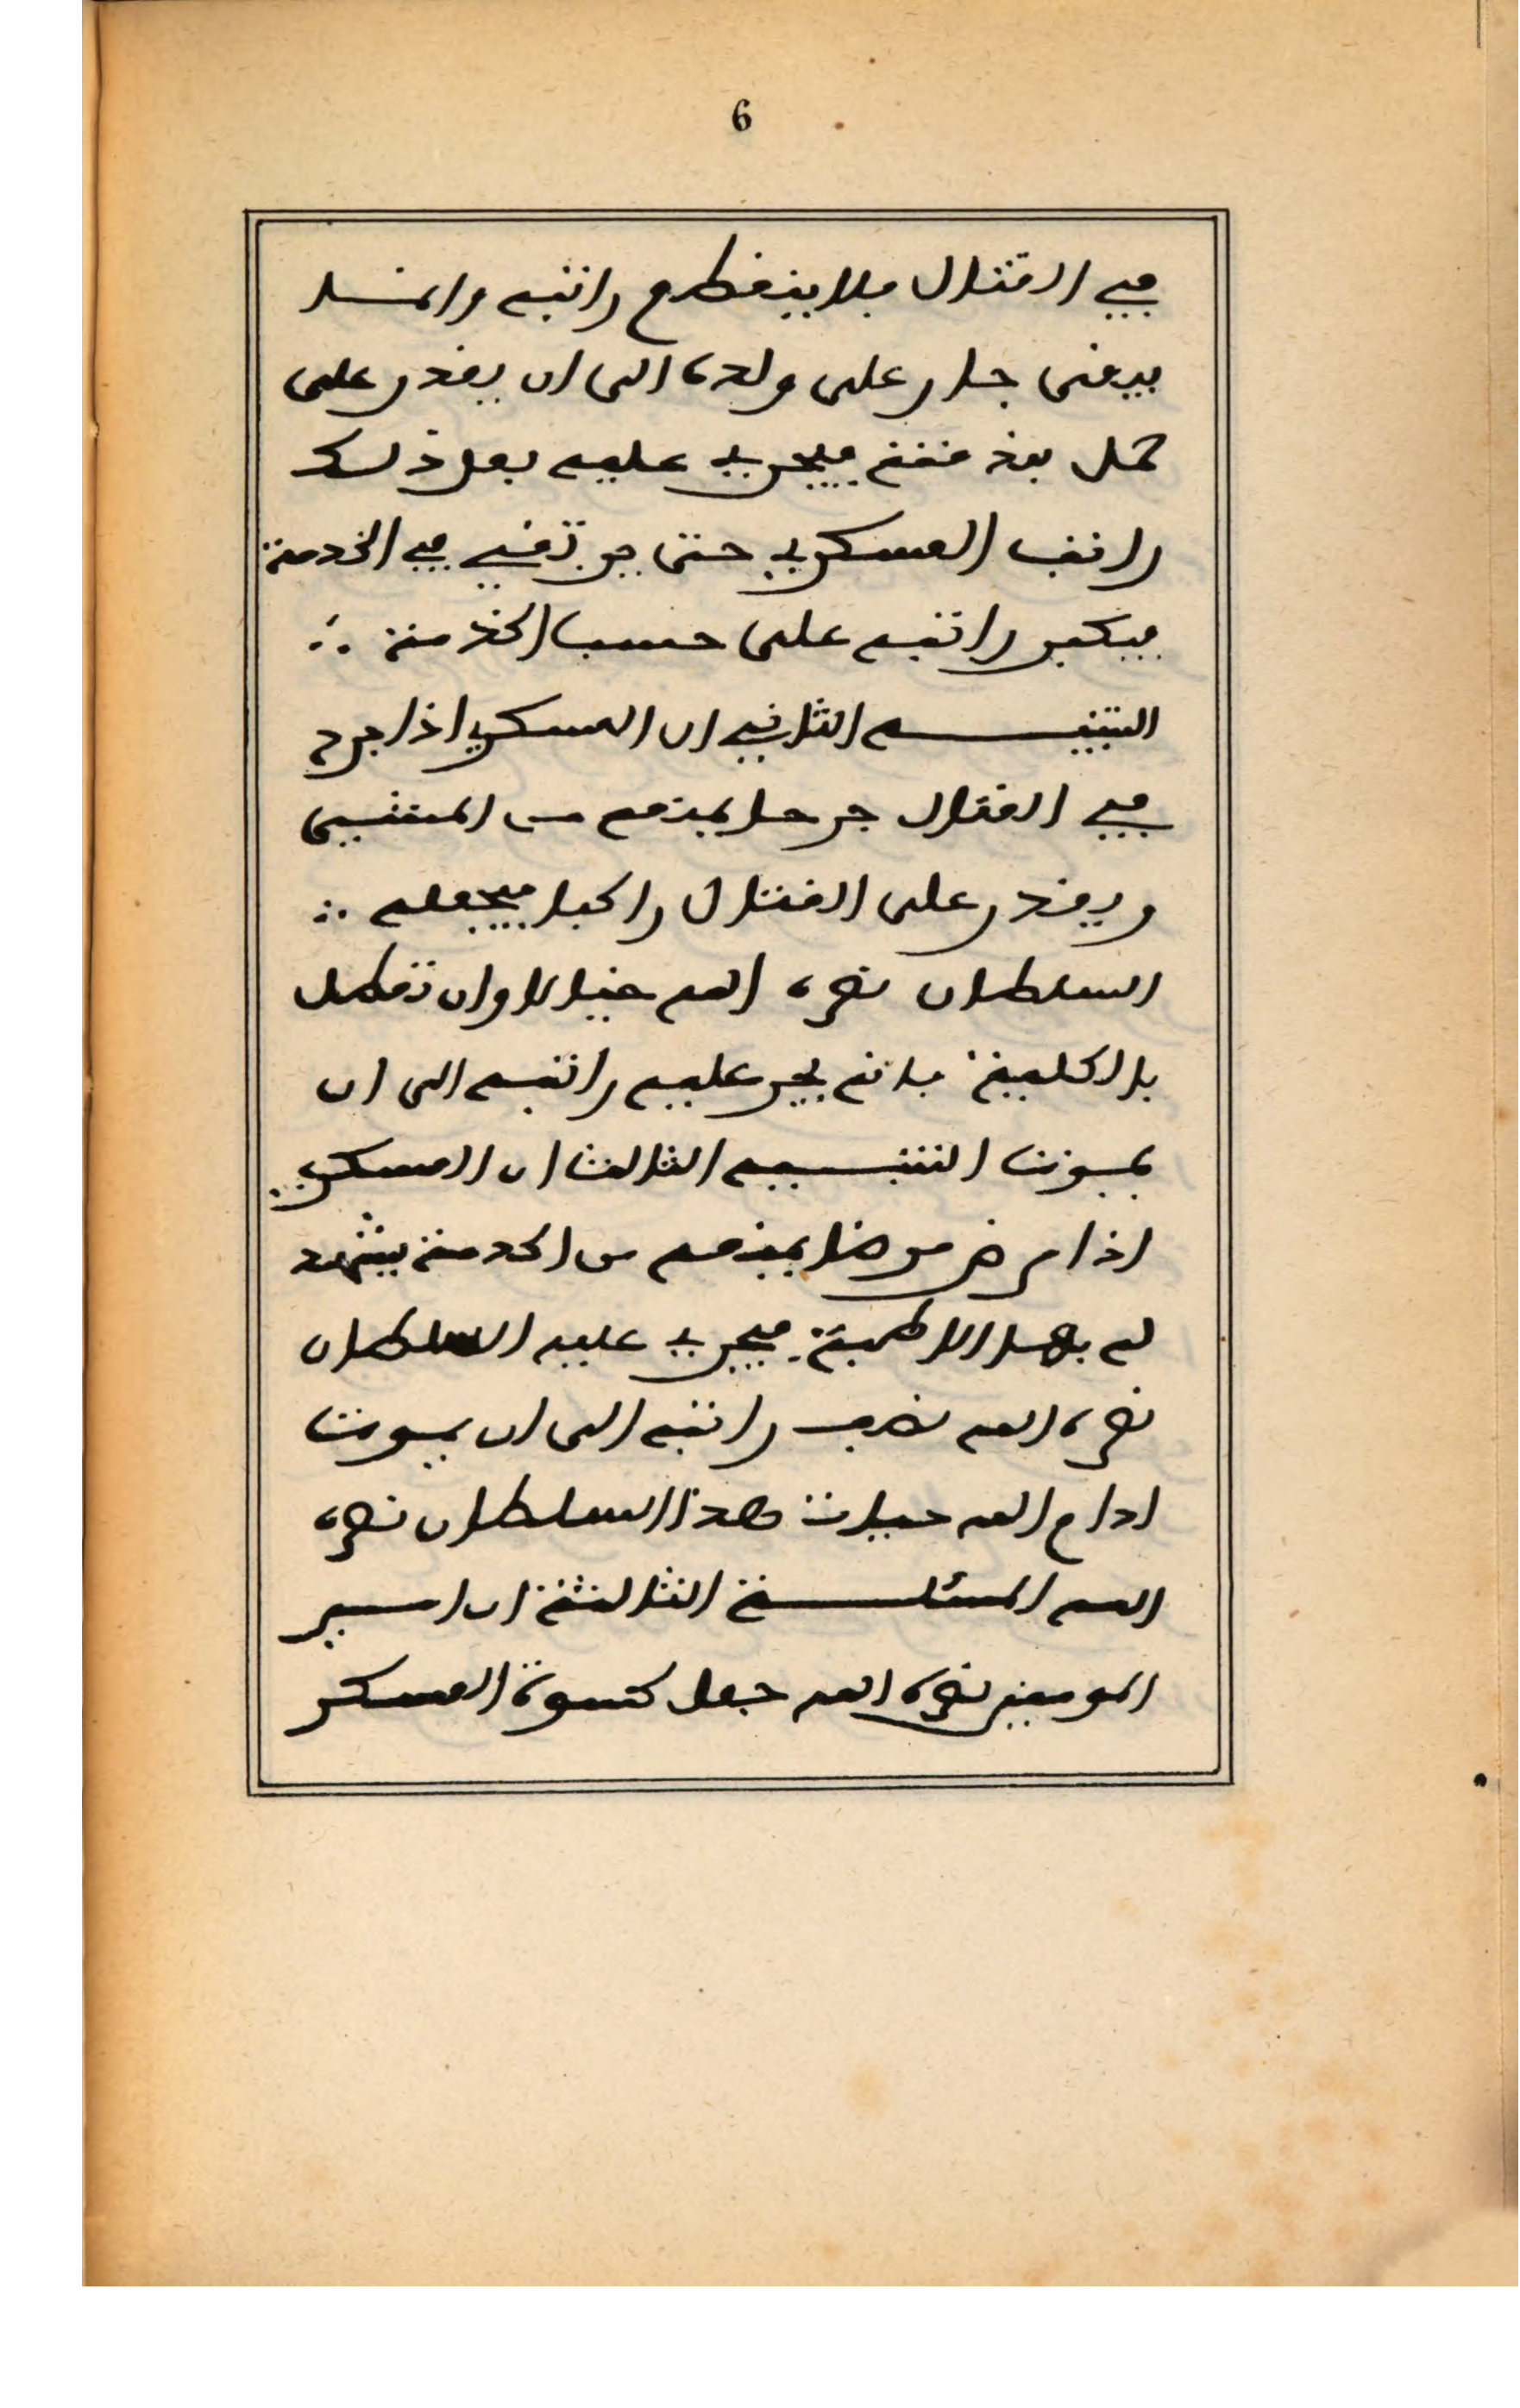 6
في القتال فلا ينقطع راتبه وانما
يبقى جار على ولده الى ان يقدر على
حمل بندقته فيجري عليه بعد ذلك
راتب العسكري حتى يرتقي في الخدمة
فيكبر راتبه على حسب الخدمة ∴
التنبيـــه الثاني ان العسكري اذا جرح
في القتال جرحا يمنعه من المشي
ويقدر على القتال راكبا فيجعله ∴
السلطان نصره الله خيالا وان تعطل
بالكلية فانه يجر عليه راتبه الى ان
يموت التنبـــيه الثالث ان العسكري
اذا مرض مرضا يمنعه من الخدمة يشهد
له بها الاطبة فيجري عليه السلطان
نصره الله نصف راتبه الى ان يموت
ادام الله حيات هذا السلطان نصره
الله المسئلـــة الثالثة ان امير
المومنين نصره الله جعل كسوة العسكر